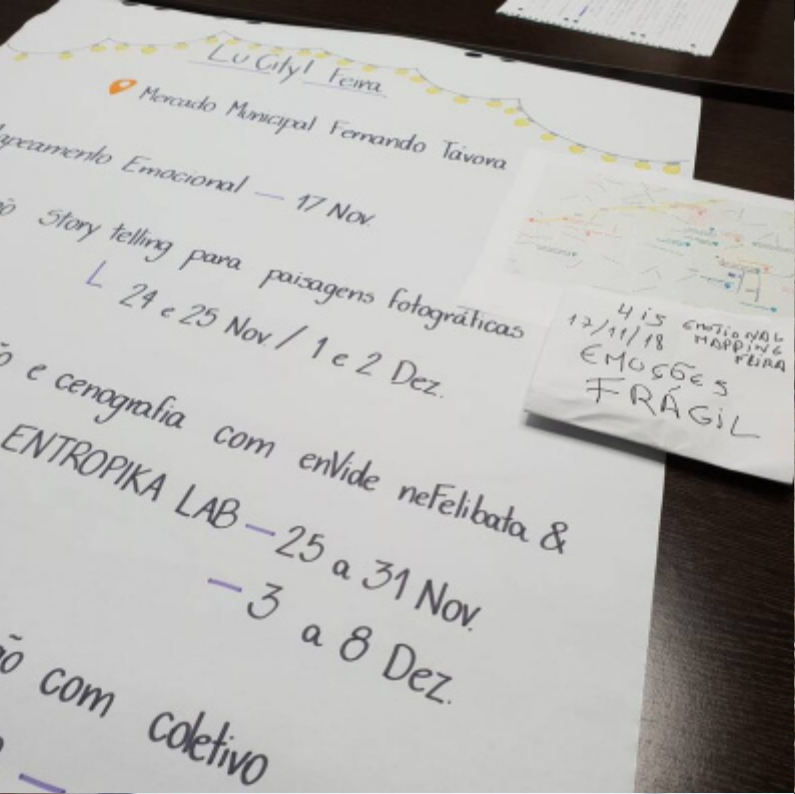 LuCity! Feira
Mercado Municipal Fernando Távora
apeamento Emocional — 17 Nov.
ão Story telling para paisagens fotográficas
24 e 25 Nov. / 1 e 2 Dez.
ão e cenografia com enVide neFelibata &
ENTROPIKA LAB — 25 a 31 Nov.
— 3 a 8 Dez.
ão com coletivo
4is EMOTIONAL
17/11/18 MAPPING
FEIRA
EMOÇÕES
FRÁGIL